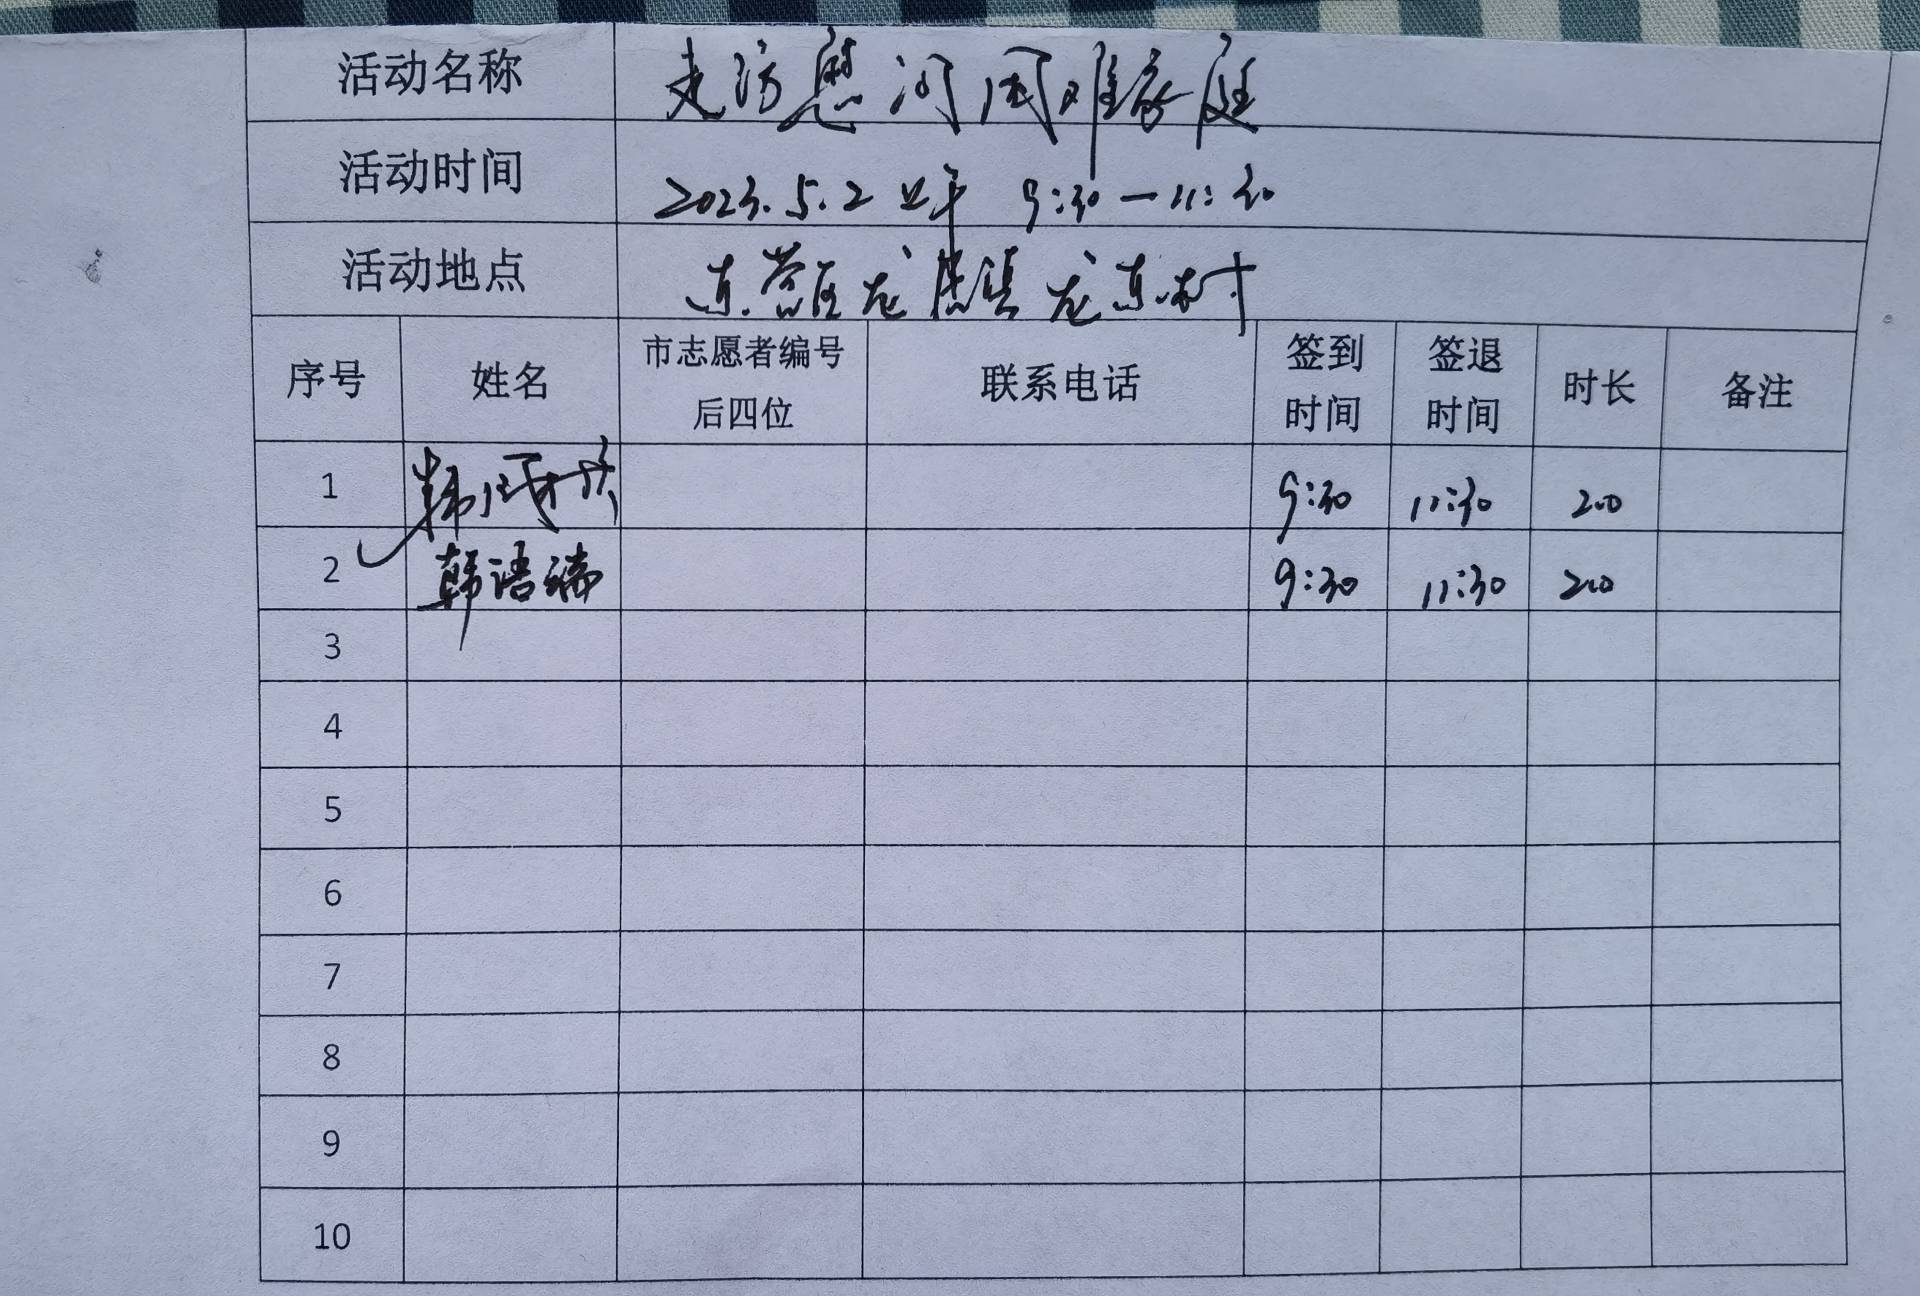 活动名称 走访慰问困难家庭
活动时间 2023.5.2 上午 9:30—11:30
活动地点 东营区龙居镇龙东村
序号 姓名 市志愿者编号后四位 联系电话 签到时间 签退时间 时长 备注
1 韩 9:30 11:30 2.0
2 韩语瑞 9:30 11:30 2.0
3
4
5
6
7
8
9
10